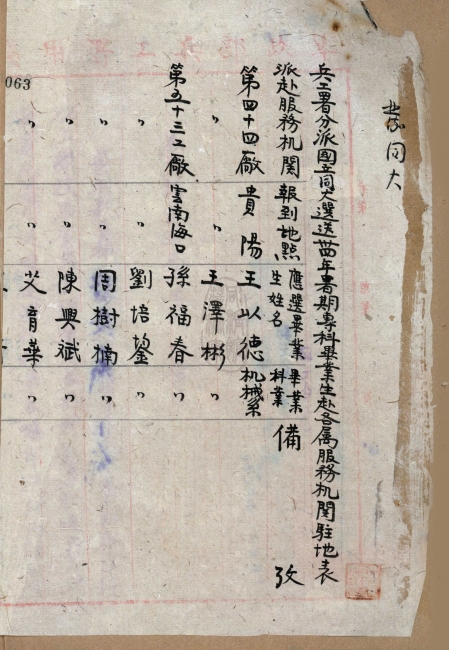 發同大
兵工署分派國立同大選送卅四年暑期專科畢業生赴各属服務机関駐地表
派赴服務机関 報到地點 應選畢業生姓名 畢業科業 備 攷
第四十四廠 貴陽 王以德 机械系
〃 〃 王澤彬 〃
第五十三工廠 雲南海口 孫福春 〃
〃 〃 劉培鋆 〃
〃 〃 周樹楠 〃
〃 〃 陳興斌 〃
〃 〃 艾育華 〃
063